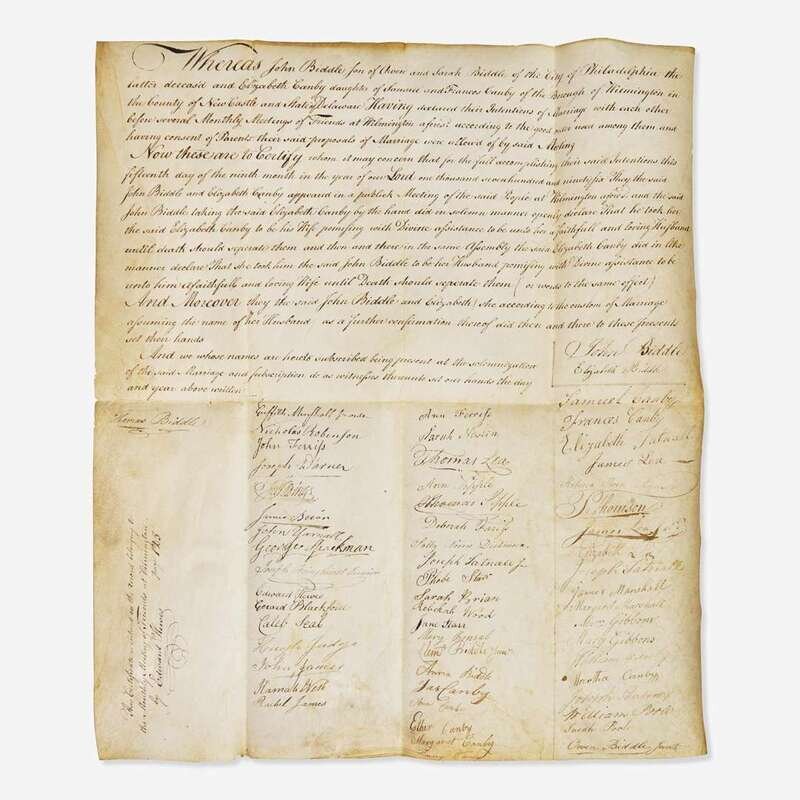 Whereas John Biddle son of Owen and Sarah Biddle of the City of Philadelphia the
latter deceased and Elizabeth Canby daughter of Samuel and Frances Canby of the Borough of Wilmington in
the County of New Castle and State Delaware Having declared their Intentions of Marriage with each other
before several Monthly Meetings of Friends at Wilmington afores. according to the good order used among them and
having consent of Parents their said proposals of Marriage were allowed of by said Meeting
Now these are to Certify whom it may concern that for the full accomplishing their said Intentions this
fifteenth day of the ninth month in the year of our Lord one thousand seven hundred and ninety six They the said
John Biddle and Elizabeth Canby appeared in a publick Meeting of the said People at Wilmington afores. and the said
John Biddle taking the said Elizabeth Canby by the hand did in solemn manner openly declare That he took her
the said Elizabeth Canby to be his Wife promising with Divine assistance to be unto her a faithfull and loving Husband
until death should seperate them and then and there in the same Assembly the said Elizabeth Canby did in like
manner declare That she took him the said John Biddle to be her Husband promising with Divine assistance to be
unto him a faithfull and loving Wife until Death should seperate them (or words to the same effect)
And Moreover they the said John Biddle and Elizabeth (she according to the custom of Marriage
assuming the name of her Husband as a further confirmation thereof did then and there to these presents
set their hands
And we whose names are hereto subscribed being present at the solemnization
of the said Marriage and subscription do as witnesses thereunto set our hands the day
and year above written
John Biddle
Elizabeth Biddle
Thomas Biddle
This Certificate is recorded in the
the Monthly Meeting of Friends at Wilmington
by Edward Hewes
Griffith Marshall
Nicholas Robinson
John Ferriss
Joseph Warner
James Brian
John Yarnall
George Spackman
Edward Hewes
Gerard Blackford
Caleb Seal
Hugh Judge
John James
Hannah
Rachel James
Ann Ferriss
Sarah
Thomas Lea
Ann
Thomas
Deborah Ferriss
Sally Norris Dickinson
Joseph Tatnall Jr
Phebe Starr
Sarah Byrian
Rebekah Wood
Jane Starr
Mary
Clem. Biddle Junr
Anna Biddle
Jas Canby
Ann
Esther Canby
Margaret Canby
Samuel Canby
Frances Canby
Elizabeth Tatnall
James Lea
Thomson
James Lea
Elizabeth
Joseph Tatnall
James Marshall
Margaret Marshall
Gibbons
Mary Gibbons
William
Martha Canby
Joseph
William Poole
Sarah Poole
Owen Biddle Junr